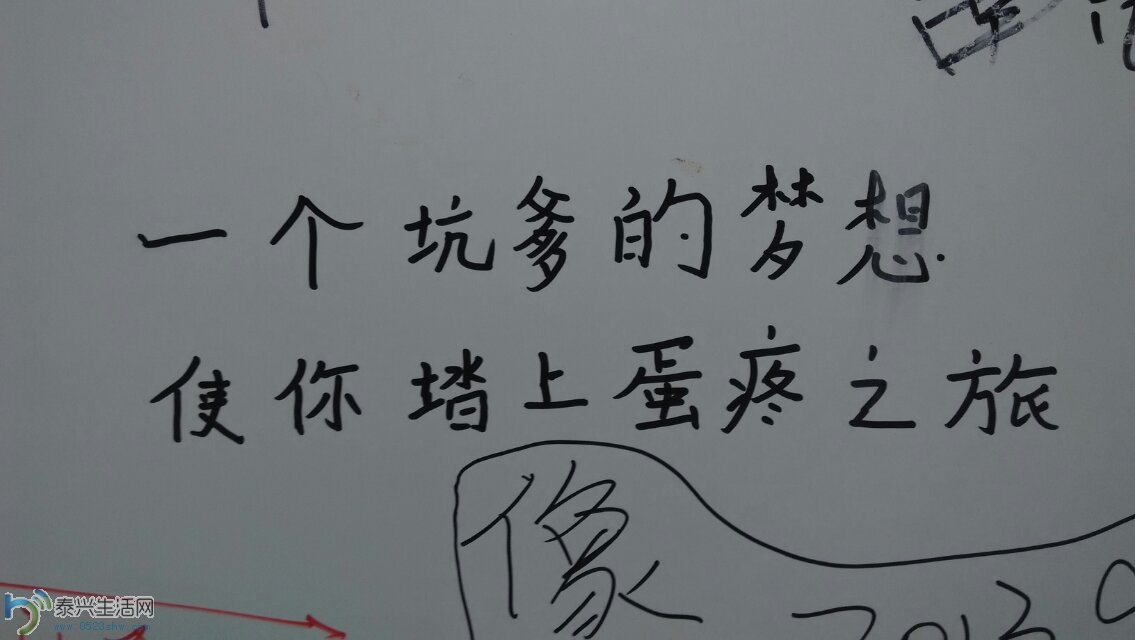 一个坑爹的梦想
使你墙上蛋疼之旅
像
2013
泰兴生活网